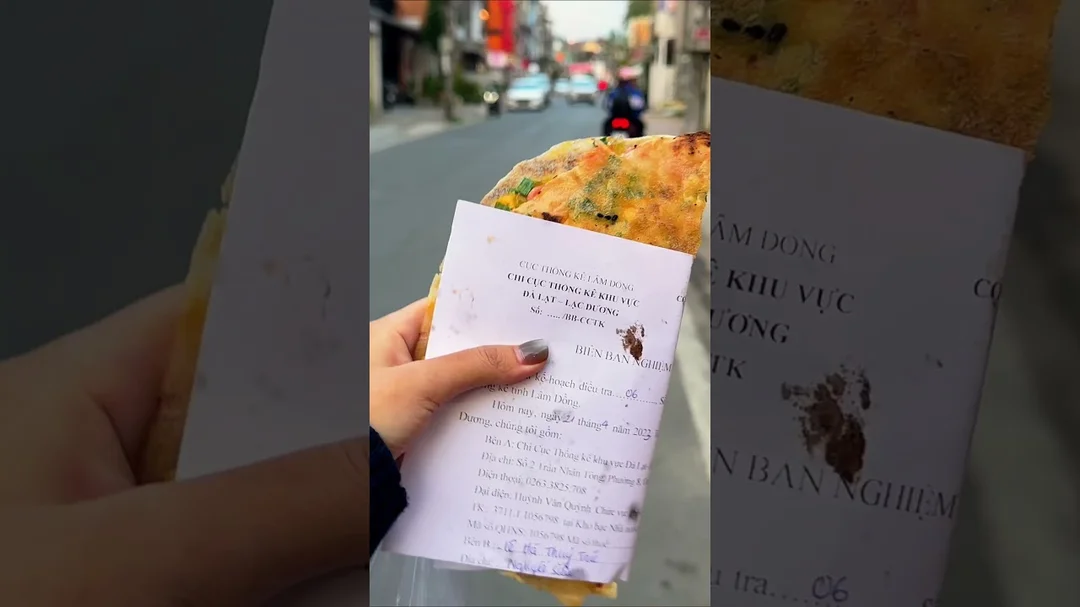 CỤC THỐNG KÊ LÂM ĐỒNG
CHI CỤC THỐNG KÊ KHU VỰC
ĐÀ LẠT – LẠC DƯƠNG
Số: ..... /BB-CCTK
BIÊN BẢN NGHIỆM
kế hoạch điều tra....06......
kê tỉnh Lâm Đồng.
Hôm nay, ngày 21 tháng 4 năm 2023
Dương, chúng tôi gồm:
Bên A: Chi Cục Thống kê khu vực Đà Lạt
Địa chỉ: Số 2 Trần Nhân Tông, Phường 8,
Điện thoại: 0263.3825.708
Đại diện: Huỳnh Văn Quỳnh. Chức vụ:
TK: 3711.1.1056798 tại Kho bạc Nhà
Mã số QHNS: 1056798 Mã số thuế
Bên B: Lê Thuỳ
Địa chỉ: